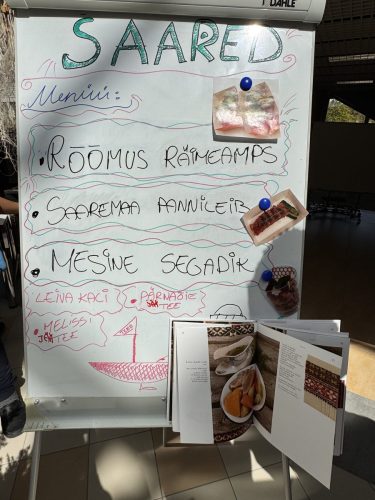 DAHLE
SAARED
Menüü:
• RÕÕMUS RÄIMEAMPS
• SAAREMAA PANNILEIB
• MESINE SEGADIK
LEINA KALI
• PÄRNAÕIE
TEE
• MELISSI
TEE